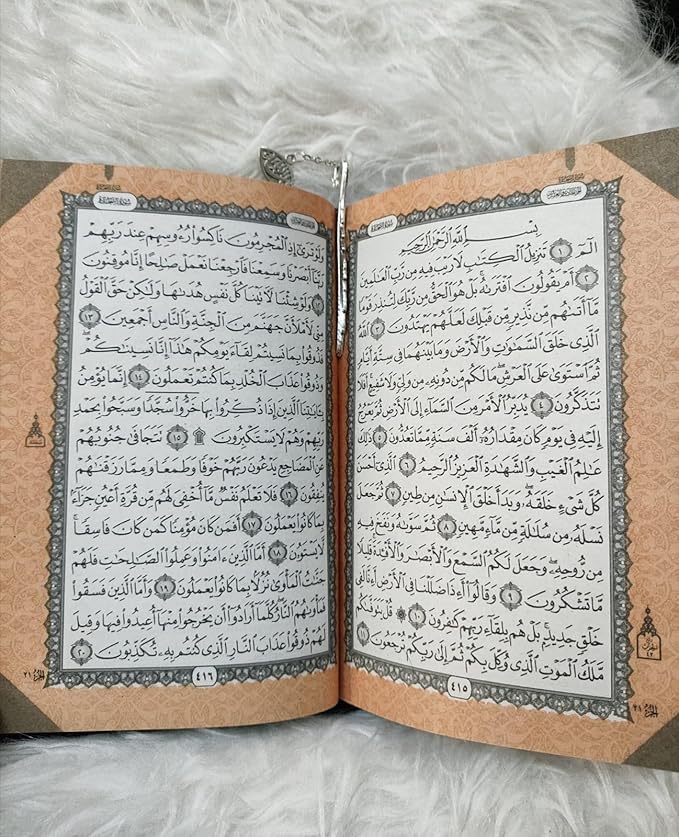 سُورَةُ السَّجْدَةِ
الجُزْءُ الحَادِي وَالعِشْرُونَ
بِسْمِ ٱللَّهِ ٱلرَّحْمَٰنِ ٱلرَّحِيمِ
الٓمٓ ١ تَنزِيلُ ٱلْكِتَٰبِ لَا رَيْبَ فِيهِ مِن رَّبِّ ٱلْعَٰلَمِينَ
٢ أَمْ يَقُولُونَ ٱفْتَرَىٰهُۚ بَلْ هُوَ ٱلْحَقُّ مِن رَّبِّكَ لِتُنذِرَ قَوْمًا
مَّآ أَتَىٰهُم مِّن نَّذِيرٍ مِّن قَبْلِكَ لَعَلَّهُمْ يَهْتَدُونَ ٣ ٱللَّهُ
ٱلَّذِى خَلَقَ ٱلسَّمَٰوَٰتِ وَٱلْأَرْضَ وَمَا بَيْنَهُمَا فِى سِتَّةِ أَيَّامٍ
ثُمَّ ٱسْتَوَىٰ عَلَى ٱلْعَرْشِۖ مَا لَكُم مِّن دُونِهِۦ مِن وَلِىٍّ وَلَا شَفِيعٍۚ أَفَلَا
تَتَذَكَّرُونَ ٤ يُدَبِّرُ ٱلْأَمْرَ مِنَ ٱلسَّمَآءِ إِلَى ٱلْأَرْضِ ثُمَّ يَعْرُجُ
إِلَيْهِ فِى يَوْمٍ كَانَ مِقْدَارُهُۥٓ أَلْفَ سَنَةٍ مِّمَّا تَعُدُّونَ ٥ ذَٰلِكَ
عَٰلِمُ ٱلْغَيْبِ وَٱلشَّهَٰدَةِ ٱلْعَزِيزُ ٱلرَّحِيمُ ٦ ٱلَّذِىٓ أَحْسَنَ
كُلَّ شَىْءٍ خَلَقَهُۥۖ وَبَدَأَ خَلْقَ ٱلْإِنسَٰنِ مِن طِينٍ ٧ ثُمَّ جَعَلَ
نَسْلَهُۥ مِن سُلَٰلَةٍ مِّن مَّآءٍ مَّهِينٍ ٨ ثُمَّ سَوَّىٰهُ وَنَفَخَ فِيهِ
مِن رُّوحِهِۦۖ وَجَعَلَ لَكُمُ ٱلسَّمْعَ وَٱلْأَبْصَٰرَ وَٱلْأَفْـِٔدَةَۚ قَلِيلًا
مَّا تَشْكُرُونَ ٩ وَقَالُوٓا۟ أَءِذَا ضَلَلْنَا فِى ٱلْأَرْضِ أَءِنَّا لَفِى
خَلْقٍ جَدِيدٍۭۚ بَلْ هُم بِلِقَآءِ رَبِّهِمْ كَٰفِرُونَ ١٠ ۞ قُلْ يَتَوَفَّىٰكُم
مَّلَكُ ٱلْمَوْتِ ٱلَّذِى وُكِّلَ بِكُمْ ثُمَّ إِلَىٰ رَبِّكُمْ تُرْجَعُونَ ١١
٤١٥
الجزء ٢١
الحزب ٤٢
سُورَةُ السَّجْدَةِ
وَلَوْ تَرَىٰٓ إِذِ ٱلْمُجْرِمُونَ نَاكِسُوا۟ رُءُوسِهِمْ عِندَ رَبِّهِمْ
رَبَّنَآ أَبْصَرْنَا وَسَمِعْنَا فَٱرْجِعْنَا نَعْمَلْ صَٰلِحًا إِنَّا مُوقِنُونَ
١٢ وَلَوْ شِئْنَا لَـَٔاتَيْنَا كُلَّ نَفْسٍ هُدَىٰهَا وَلَٰكِنْ حَقَّ ٱلْقَوْلُ
مِنِّى لَأَمْلَأَنَّ جَهَنَّمَ مِنَ ٱلْجِنَّةِ وَٱلنَّاسِ أَجْمَعِينَ ١٣
فَذُوقُوا۟ بِمَا نَسِيتُمْ لِقَآءَ يَوْمِكُمْ هَٰذَآ إِنَّا نَسِينَٰكُمْۖ
وَذُوقُوا۟ عَذَابَ ٱلْخُلْدِ بِمَا كُنتُمْ تَعْمَلُونَ ١٤ إِنَّمَا يُؤْمِنُ
بِـَٔايَٰتِنَا ٱلَّذِينَ إِذَا ذُكِّرُوا۟ بِهَا خَرُّوا۟ سُجَّدًا وَسَبَّحُوا۟ بِحَمْدِ
رَبِّهِمْ وَهُمْ لَا يَسْتَكْبِرُونَ ۩ ١٥ تَتَجَافَىٰ جُنُوبُهُمْ
عَنِ ٱلْمَضَاجِعِ يَدْعُونَ رَبَّهُمْ خَوْفًا وَطَمَعًا وَمِمَّا رَزَقْنَٰهُمْ
يُنفِقُونَ ١٦ فَلَا تَعْلَمُ نَفْسٌ مَّآ أُخْفِىَ لَهُم مِّن قُرَّةِ أَعْيُنٍ جَزَآءًۢ
بِمَا كَانُوا۟ يَعْمَلُونَ ١٧ أَفَمَن كَانَ مُؤْمِنًا كَمَن كَانَ فَاسِقًاۚ
لَّا يَسْتَوُۥنَ ١٨ أَمَّا ٱلَّذِينَ ءَامَنُوا۟ وَعَمِلُوا۟ ٱلصَّٰلِحَٰتِ فَلَهُمْ
جَنَّٰتُ ٱلْمَأْوَىٰ نُزُلًۢا بِمَا كَانُوا۟ يَعْمَلُونَ ١٩ وَأَمَّا ٱلَّذِينَ فَسَقُوا۟
فَمَأْوَىٰهُمُ ٱلنَّارُۖ كُلَّمَآ أَرَادُوٓا۟ أَن يَخْرُجُوا۟ مِنْهَآ أُعِيدُوا۟ فِيهَا وَقِيلَ
لَهُمْ ذُوقُوا۟ عَذَابَ ٱلنَّارِ ٱلَّذِى كُنتُم بِهِۦ تُكَذِّبُونَ ٢٠
٤١٦
الجزء ٢١